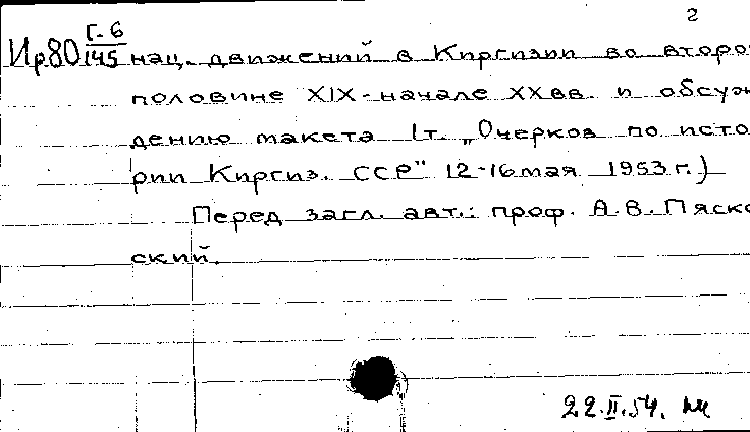 2
Ир80 Г-6/145 нац. движений в Киргизии во второ
половине XIX-начале XX вв. и обсуж
дению макета 1т. „Очерков по исто
рии Киргиз. ССР" 12-16 мая 1953 г.)
Перед загл. авт.: проф. А.В.Пяско
ский.
22.II.54.